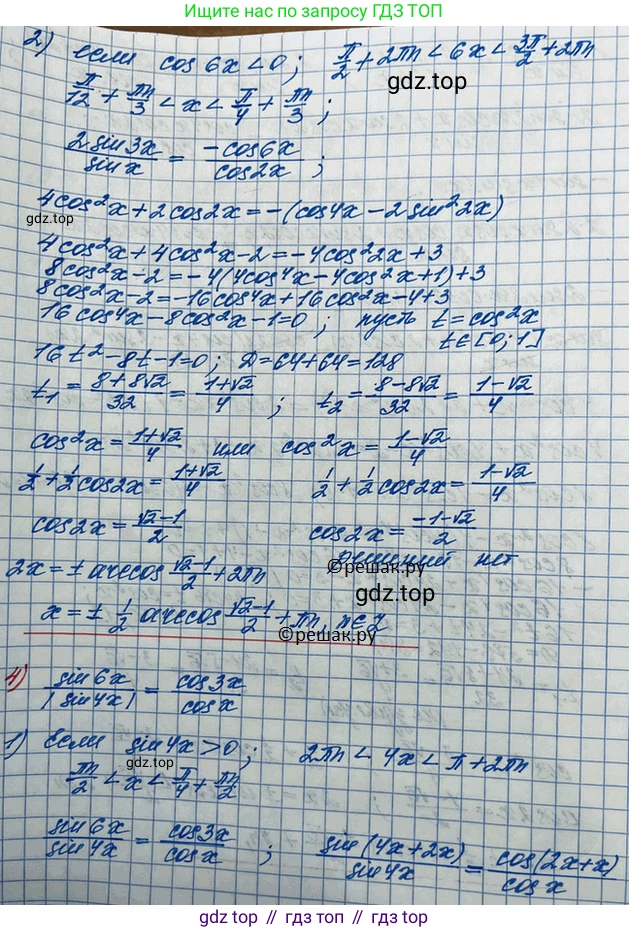 Ищите нас по запросу ГДЗ ТОП
2) если cos6x<0; π/2+2πn<6x<3π/2+2πn
gdz.top
π/12+πn/3<x<π/4+πn/3;
2sin3x/sinx=-cos6x/cos2x;
4cos²x+2cos2x=-(cos4x-2sin²2x)
gdz.top
4cos²x+4cos²x-2=-4cos²2x+3
8cos²x-2=-4(4cos⁴x-4cos²x+1)+3
8cos²x-2=-16cos⁴x+16cos²x-4+3
16cos⁴x-8cos²x-1=0; пусть t=cos²x
t∈[0;1]
16t²-8t-1=0; D=64+64=128
t₁=8+8√2/32=1+√2/4; t₂=8-8√2/32=1-√2/4
cos²x=1+√2/4 или cos²x=1-√2/4
1/2+1/2cos2x=1+√2/4 1/2+1/2cos2x=1-√2/4
cos2x=√2-1/2 cos2x=-1-√2/2
решений нет
©решак.ру
2x=±arccos√2-1/2+2πn
gdz.top
x=±1/2arccos√2-1/2+πn, n∈Z
©решак.ру
4) sin6x/|sin4x|=cos3x/cosx
1) Если sin4x>0; 2πn<4x<π+2πn
πn/2<x<π/4+πn/2
gdz.top
sin6x/sin4x=cos3x/cosx; sin(4x+2x)/sin4x=cos(2x+x)/cosx
gdz.top // гдз.топ // gdz.top // гдз.топ